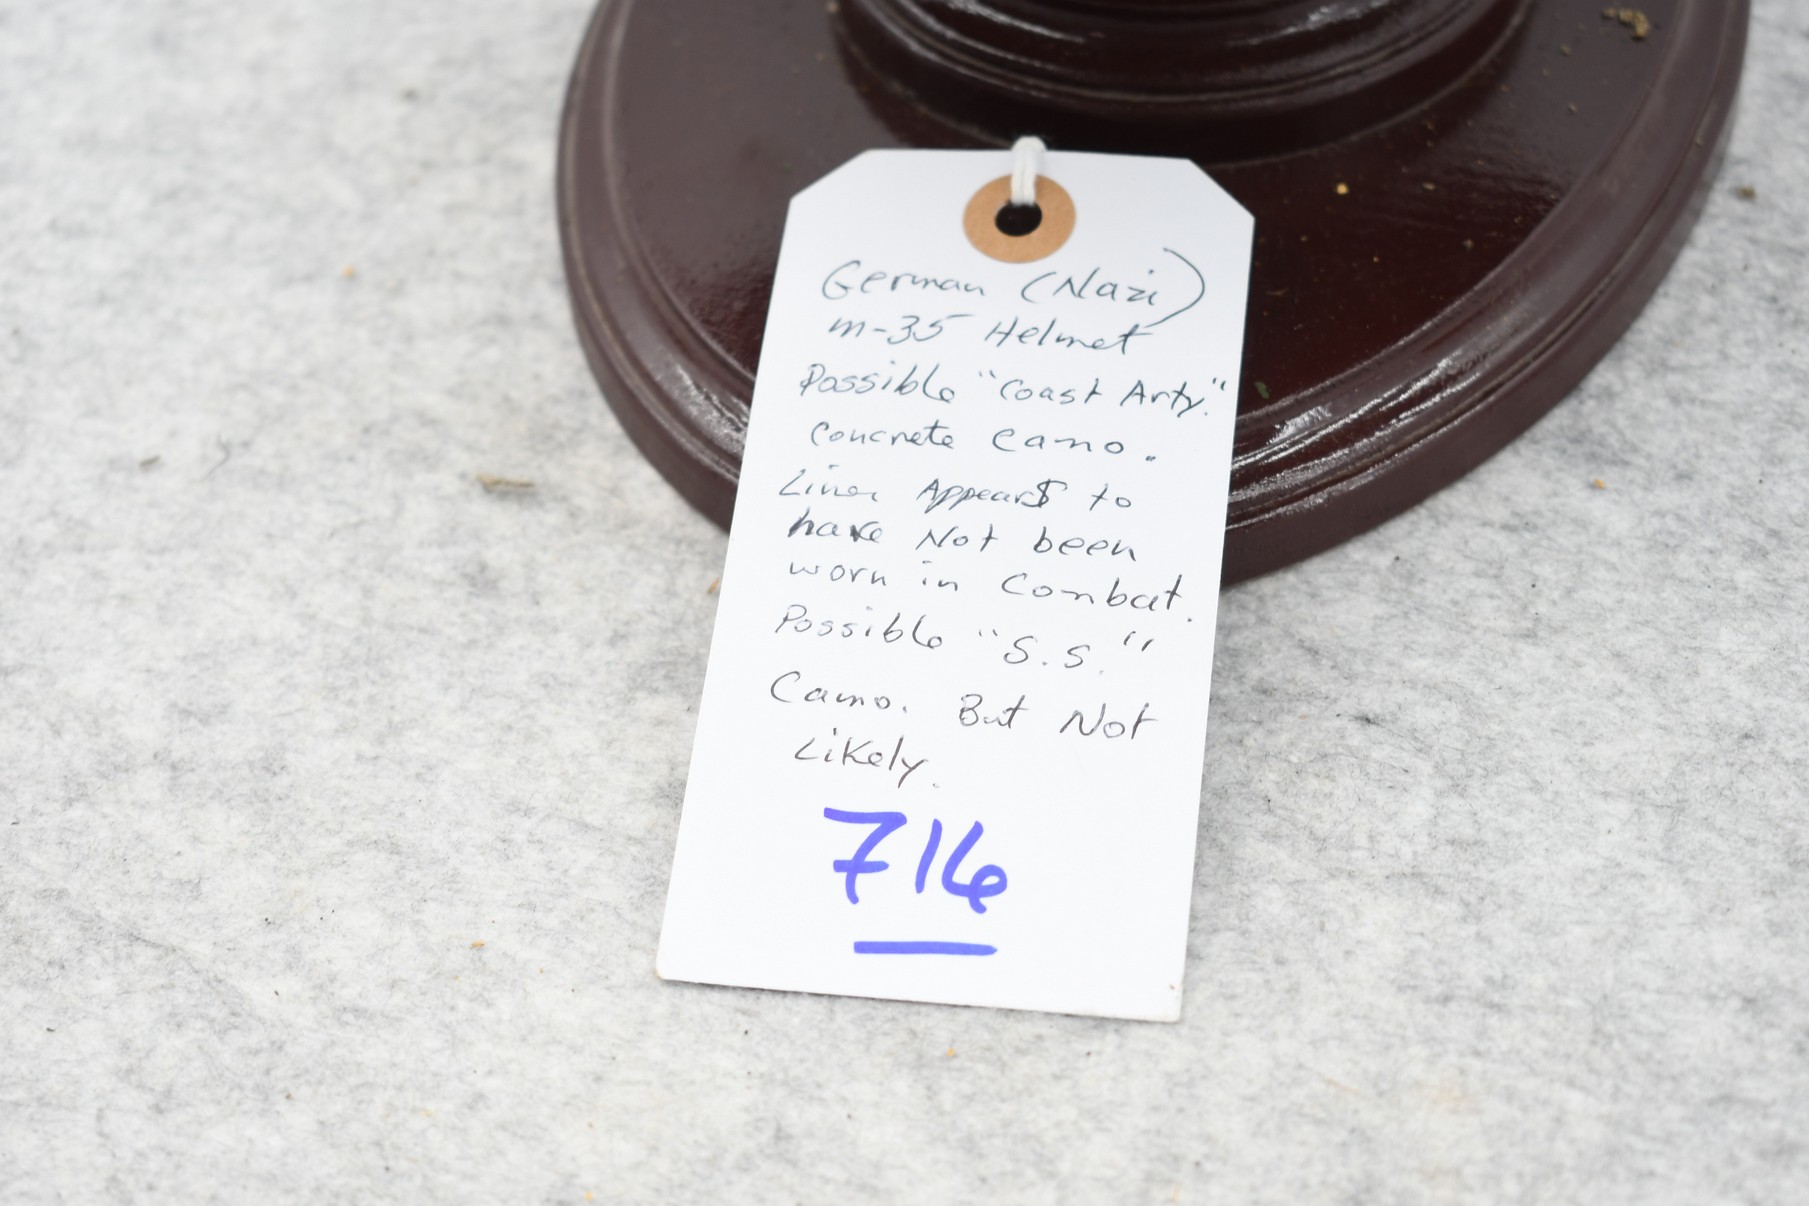 German (Nazi)
m-35 Helmet
Possible "Coast Arty."
concrete camo.
Liner Appears to
have Not been
worn in Combat.
Possible "S.S."
Camo. But Not
Likely.
716